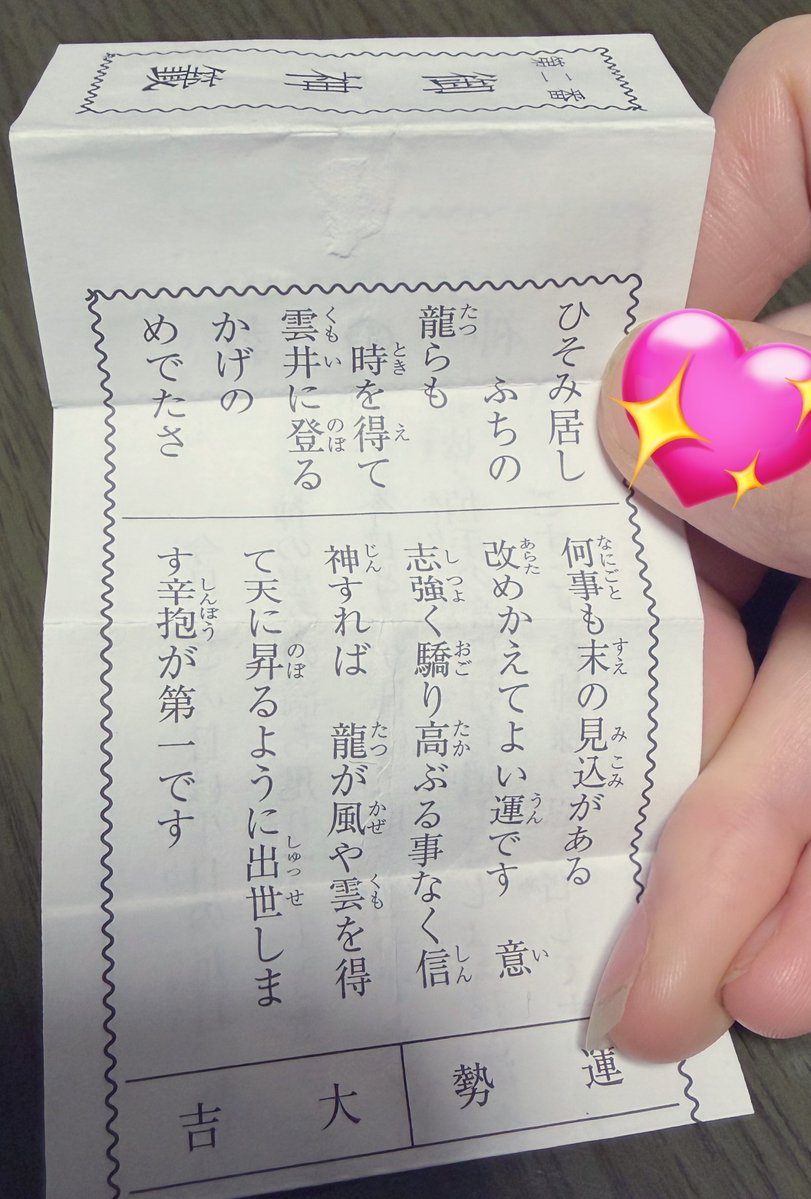 第一二番
御神籤
ひそみ居し
ふちの
龍らも
時を得て
雲井に登る
かげの
めでたさ
何事も末の見込がある
改めかえてよい運です　意
志強く驕り高ぶる事なく信
神すれば　龍が風や雲を得
て天に昇るように出世しま
す辛抱が第一です
運勢
大吉